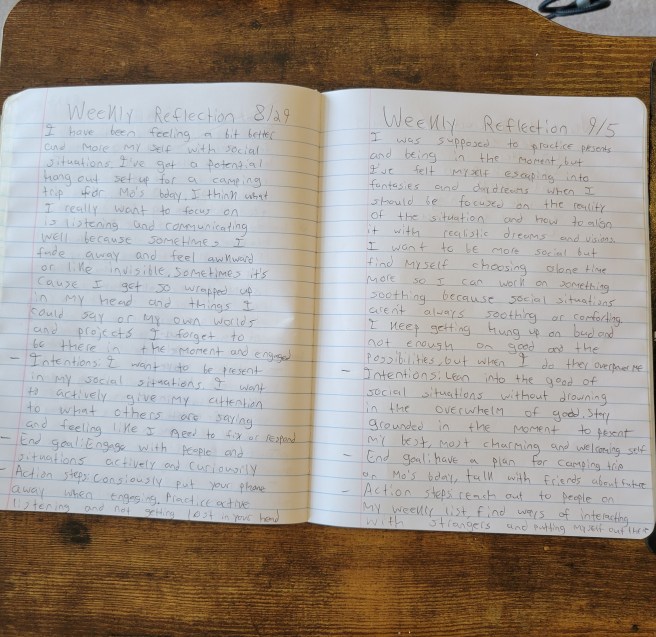 Weekly Reflection 8/29
I have been feeling a bit better
and more my self with social
situations. I've got a potential
hang out set up for a camping
trip for Mo's bday. I think what
I really want to focus on
is listening and communicating
well because sometimes I
fade away and feel awkward
or like invisible. Sometimes it's
cause I get so wrapped up
in my head and things I
could say or my own worlds
and projects I forget to
be there in the moment and engaged
- Intentions: I want to be present
in my social situations. I want
to actively give my attention
to what others are saying
and feeling like I need to fix or respond
- End goal: Engage with people and
situations actively and curiously
- Action steps: consiously put your phone
away when engaging. Practice active
listening and not getting lost in your head
Weekly Reflection 9/5
I was supposed to practice presents
and being in the moment, but
I've felt myself escaping into
fantasies and daydreams when I
should be focused on the reality
of the situation and how to align
it with realistic dreams and visions
I want to be more social but
find myself choosing alone time
more so I can work on something
soothing because social situations
arent always soothing or comforting
I keep getting hung up on bad and
not enough on good and the
possibilities, but when I do they overpower me
- Intentions: Lean into the good of
social situations without drowning
in the overwhelm of good. Stay
grounded in the moment to present
my best, most charming and welcoming self
- End goal: have a plan for camping trip
on Mo's bday, talk with friends about future
- Action steps: reach out to people on
my weekly list, find ways of interacting
with strangers and putting myself out there